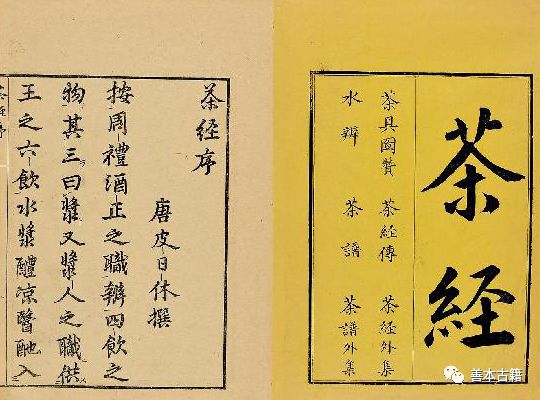 茶經
茶具圖贊　茶經傳　茶經外集
水辨　茶譜　茶譜外集
茶经序
唐皮日休撰
按周禮酒正之職辨四飲之
物其三曰漿又漿人之職供
王之六飲水漿醴凉醫酏入
善本古籍